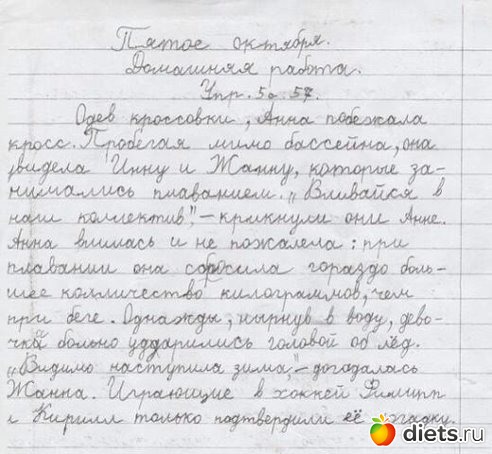 Пятое октября.
Домашняя работа.
Упр. 5а 57.
Одев кроссовки, Анна побежала
кросс. Пробегая мимо бассейна, она
увидела Инну и Жанну, которые за-
нимались плаванием. „Вливайся в
наш коллектив", – крикнули они Анне.
Анна влилась и не пожалела: при
плавании она сбросила гораздо боль-
шее колличество килограммов, чем
при беге. Однажды, нырнув в воду, дево-
чки больно ударились головой об лёд.
„Видимо наступила зима", – догадалась
Жанна. Играющие в хоккей Филипп
и Кирилл только подтвердили её догадку.
diets.ru